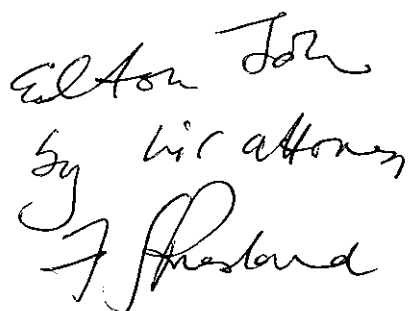 Elton John
by his attorney
F. Presland